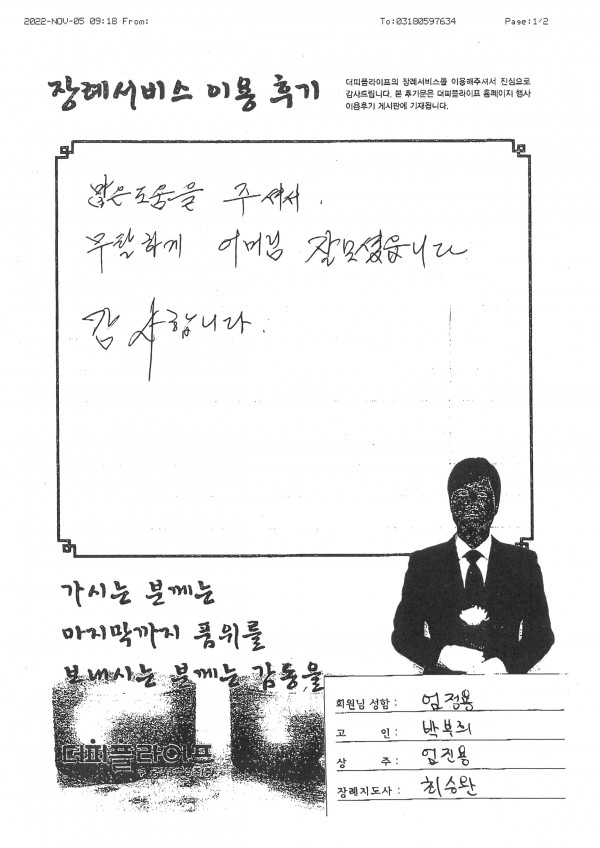 2022-NOV-05 09:18 From: To:03180597634 Page:1/2
장례서비스 이용 후기
더피플라이프의 장례서비스를 이용해주셔서 진심으로
감사드립니다. 본 후기문은 더피플라이프 홈페이지 행사
이용후기 게시판에 기재됩니다.
많은도움을 주셔서.
무탈하게 어머님 잘모셨읍니다
감사합니다.
가시는 분께는
마지막까지 품위를
보내시는 분께는 감동을
더피플라이프
회원님 성함 : 엄정용
고 인 : 박복희
상 주 : 엄진용
장례지도사 : 최승완